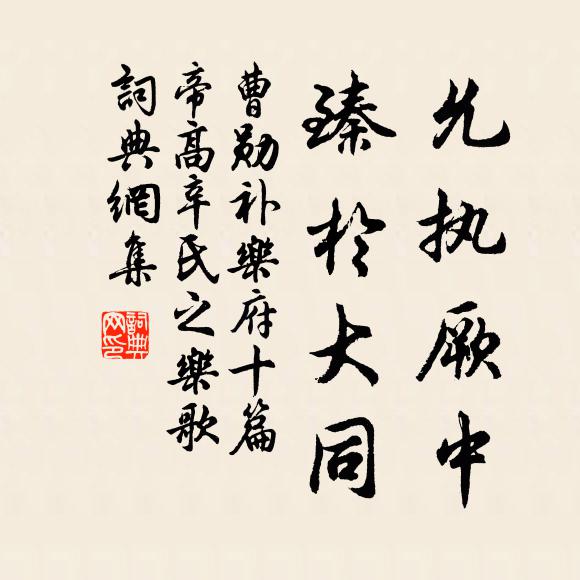 允执厥中
臻於大同
曹勋补樂府十篇
帝高辛氏之樂歌
詞典網集
詞典網印